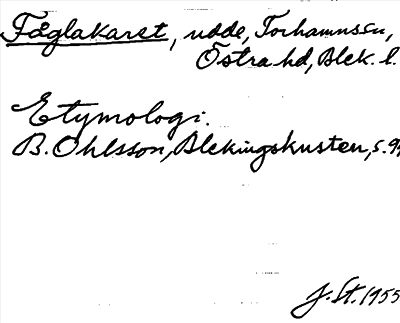 Fåglakaret, udde, Torhamnssn,
Östra hd, Blek. l.
Etymologi.
B. Ohlsson, Blekingskusten, s. 9
J. St. 1955